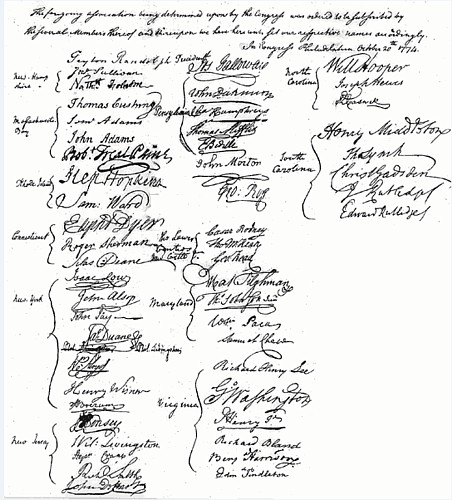 The foregoing association being determined upon by the Congress was ordered to be subscribed by
the several Members thereof and thereupon we have here unto set our respective names accordingly.
In Congress Philadelphia October 20th 1774.
Peyton Randolph President
New Hamp
shire
Jno Sullivan
Nathl Folsom
Massachusetts
Bay
Thomas Cushing
Saml Adams
John Adams
Robt Treat Paine
Rhode Island
Step Hopkins
Sam: Ward
Connecticut
Elipht Dyer
Roger Sherman
Silas Deane
New York
Isaac Low
John Alsop
John Jay
Jas Duane
Phil. Livingston
Wm Floyd
Henry Wisner
S: Boerum
New Jersey
J. Kinsey
Wil: Livingston
Stepn Crane
Richd Smith
John De Hart
Pennsylvania
Jos Galloway
John Dickinson
Cha Humphreys
Thomas Mifflin
E Biddle
John Morton
Geo: Ross
The Lower
Counties
New Castle
Caesar Rodney
Tho M:Kean
Geo Read
Maryland
Mat Tilghman
Ths Johnson Junr
Wm Paca
Samuel Chase
Virginia
Richard Henry Lee
Go Washington
P Henry Jr
Richard Bland
Benj Harrison
Edm Pendleton
North
Carolina
Will Hooper
Joseph Hewes
R Caswell
South
Carolina
Henry Middleton
Tho Lynch
Christ Gadsden
J Rutledge
Edward Rutledge